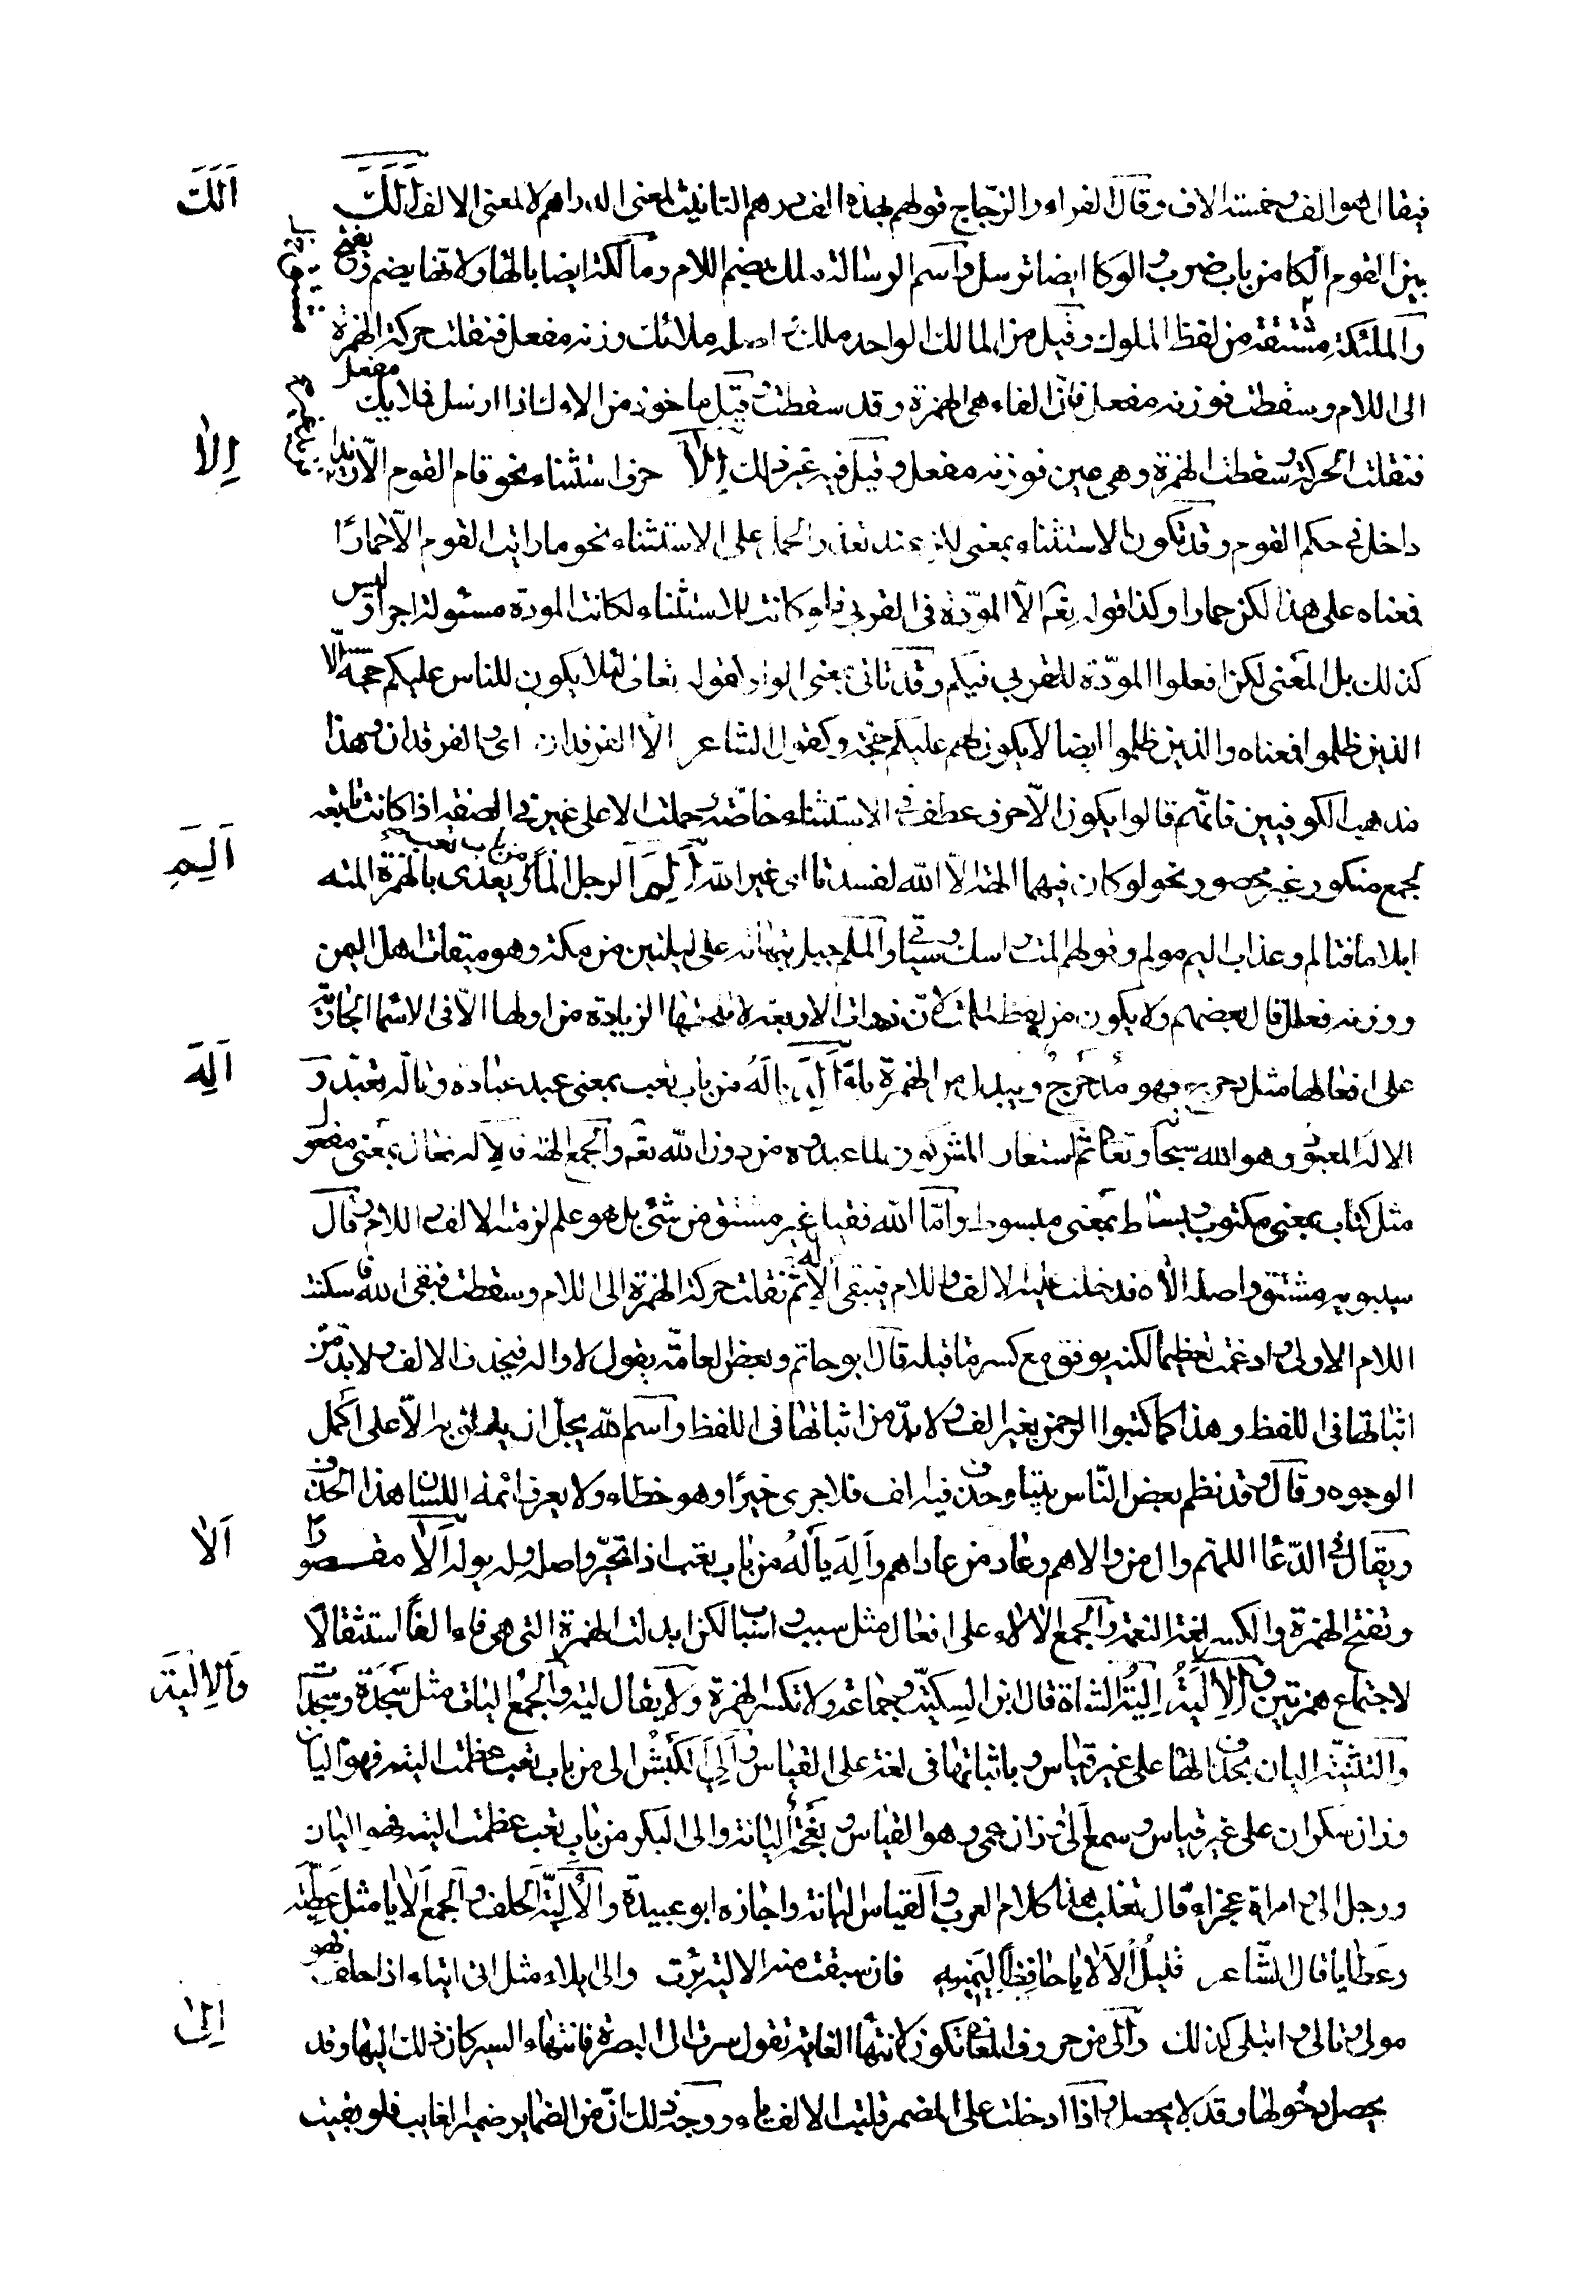 فيقال هو الف وخمسة الاف وقال الفراء والزجّاج قولهم هذه الف درهم التانيث لمعنى الدراهم لا لمعنى الالف اَلَكَ
اَلَكَ
بين القوم الكا من باب ضرب والوكا ايضا ترسل واسم الرسالة مالك بضم اللام ومالكة ايضا بالهاء ولامها يضم وتفتح
والملئكة مشتقة من لفظ الملوك وقيل من المالك الواحد ملك اصله ملائك وزنه مفعل فنقلت حركة الهمزة
الى اللام وسقطت فوزنه مفعل فانّ الفاء هى الهمزة وقد سقطت وقيل ماخوذ من لاك اذا ارسل فملاك مفعل
فنقلت الحركة وسقطت الهمزة وهى عين فوزنه مفعل وقيل فيه غير ذلك اِلّا حرف استثناء نحو قام القوم الّا زيدا
اِلاٰ
داخل فى حكم القوم وقد تكون الاستثناء بمعنى لكن عند تعذر الحمل على الاستثناء نحو ما رايت القوم الّا حمارًا
فمعناه على هذا لكن حمارا وكذا قوله تعٰ الّا المودّة فى القربى فلو كانت للاستثناء لكانت المودة مسئولة اجرا وليس
كذلك بل المعنى لكن افعلوا المودّة للقربى فيكم وقد تاتى بمعنى الواو كقوله تعالى لئلا يكون للناس عليكم حجّة الّا
الذين ظلموا فمعناه والذين ظلموا ايضا لا يكون لهم عليكم حجّة وكقول الشاعر الّا الفرقدان اى والفرقدان وهذا
مذهب الكوفيين فانّهم قالوا يكون الّا حرف عطف فى الاستثناء خاصّة وحملت الا على غير فى الصفة اذا كانت تابعة
لجمع منكور غير محصور نحو لو كان فيهما الهة الّا الله لفسدتا اى غير الله اَلِمَ الرجل الماً من باب تعب ويعدى بالهمزة المته
اَلِمَ
ايلاما فتالم وعذاب اليم مولم وقولهم المت راسك وسياتى والملم جبل بتهامة على ليلتين من مكة وهو ميقات اهل اليمن
ووزنه فعلعل قال بعضهم ولا يكون من لفظ لملمت لانّ ذوات الاربعة لا يلحقها الزيادة من اولها الّا فى الاسماء الجارية
على افعالها مثل دحرج فهو مُدحرج ويبدل من الهمزة ياء اَلِهَ يالَهُ من باب تعب بمعنى عبد عبادة وتالّه تعبّد و
اَلِهَ
الاله المعبود وهو الله سبحانه وتعالى ثمّ استعار المشركون لما عبدوه من دون الله تعٰ والجمع الهة فالاله فعال بمعنى مفعول
مثل كتاب بمعنى مكتوب وبساط بمعنى مبسوط وامّا الله فقيل غير مشتق من شئ بل هو علم لزمته الالف واللام وقال
سيبويه مشتق واصله الاه فدخلت عليه الالف واللام فبقى الالاه ثمّ نقلت حركة الهمزة الى اللام وسقطت فبقى الله فاسكنت
اللام الاولى وادغمت تعظيما لكنه يرقق مع كسر ما قبله قال ابو حاتم وبعض العامّة يقول لا والله فيحذف الالف ولا بدّ من
اثباتها فى اللفظ وهذا كما كتبوا الرحمن بغير الف ولا بدّ من اثباتها فى اللفظ واسم الله يجلّ ان ينطق به الّا على اكمل
الوجوه وقال وقد نظم بعض النّاس بيتا وحذف فيه الف فلا جرى خيرًا وهو خطاء ولا يعرف ائمة اللسان هذا الحذف
ويقال فى الدّعا اللهم وال من والاهم وعاد من عاداهم واَلِهَ يأَلَهُ من باب تعب اذا تحيّر واصله وله يوله اَلاٰ مقصور
اَلاٰ
وتفتح الهمزة والكسر لغة النعمة والجمع الالاء على افعال مثل سبب واسباب لكن ابدلت الهمزة التى هى فاء الفًا استثقالًا
لاجتماع همزتين والاَليَةُ اِليَةُ الشاة قال ابن السكيّت وجماعة ولا تكسر الهمزة ولا يقال لية والجمع اليات مثل سَجَدَة وسجدات
والاليَةَ
والتثنية اليان بحذف الهاء على غير قياس وباثباتها فى لغة على القياس واَلِىَ الكَبْشُ الى من باب تعب عظمت اليته فهو اليان
وزان سكران على غير قياس وسمع الى وزان عمى وهو القياس ونعجة اليانة والى البكر من باب تعب عظمت اليته فهو اليان
ورجل الى وامراة عجزاء قال ثعلب هذا كلام العرب والقياس اليانة واجازه ابو عبيدة والاَليَّة الحلف والجمع الَاٰيا مثل عَطيَّة
وعطايا قال الشّاعر قليلُ الاَلايا حَافِظٌ لِيَمينِه فان سبقت منه الالية برّت والى ايلاء مثل اتى ايتاء اذا حلف فهو
مولى وتالى وايتلى كذلك والى من حروف المعانى تكون لانتهاء الغاية تقول سرت الى البصرة فانتهاء السير كان ذلك اليها وقد
اِلىٰ
يحصل دخولها وقد لا يحصل واذا ادخلت على المضمر قلبت الالف ياء ووجه ذلك انّ من الضماير ضمير الغايب فلو بقيت